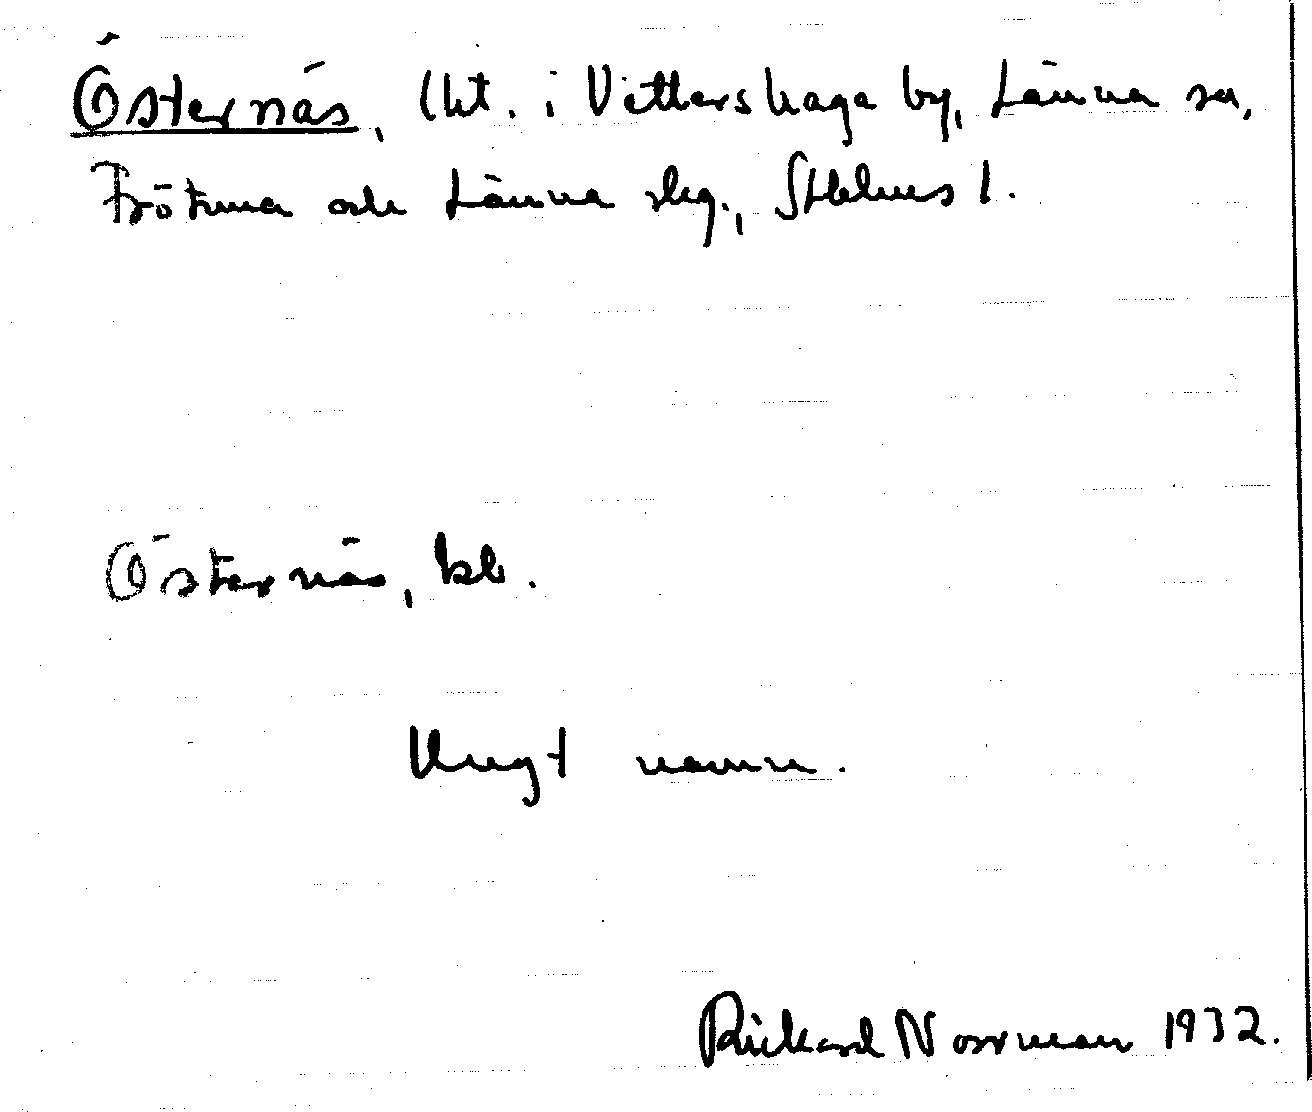 Östernäs, lht. i Vettershaga by, Länna sn,
Frötuna och Länna skg., Sthlms l.
Östernäs, kb.
Ungt namn.
Rickard Norrman 1932.